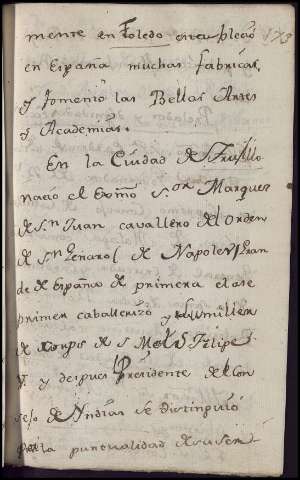 mente en Toledo estableció 179
en España muchas fabricas,
y fomentó las Bellas Artes
y Academias.
En la Ciudad de Trugillo
nació el Exmo S.or Marques
de S.n Juan cavallero del Orden
de S.n Genaro (de Napoles) Gran
de de España de primera clase
primer caballerizo y Sumiller
de Corps de S. M. Felipe
V. y despues Presidente del Con
sejo de Yndias se distinguió
la puntualidad de su ser